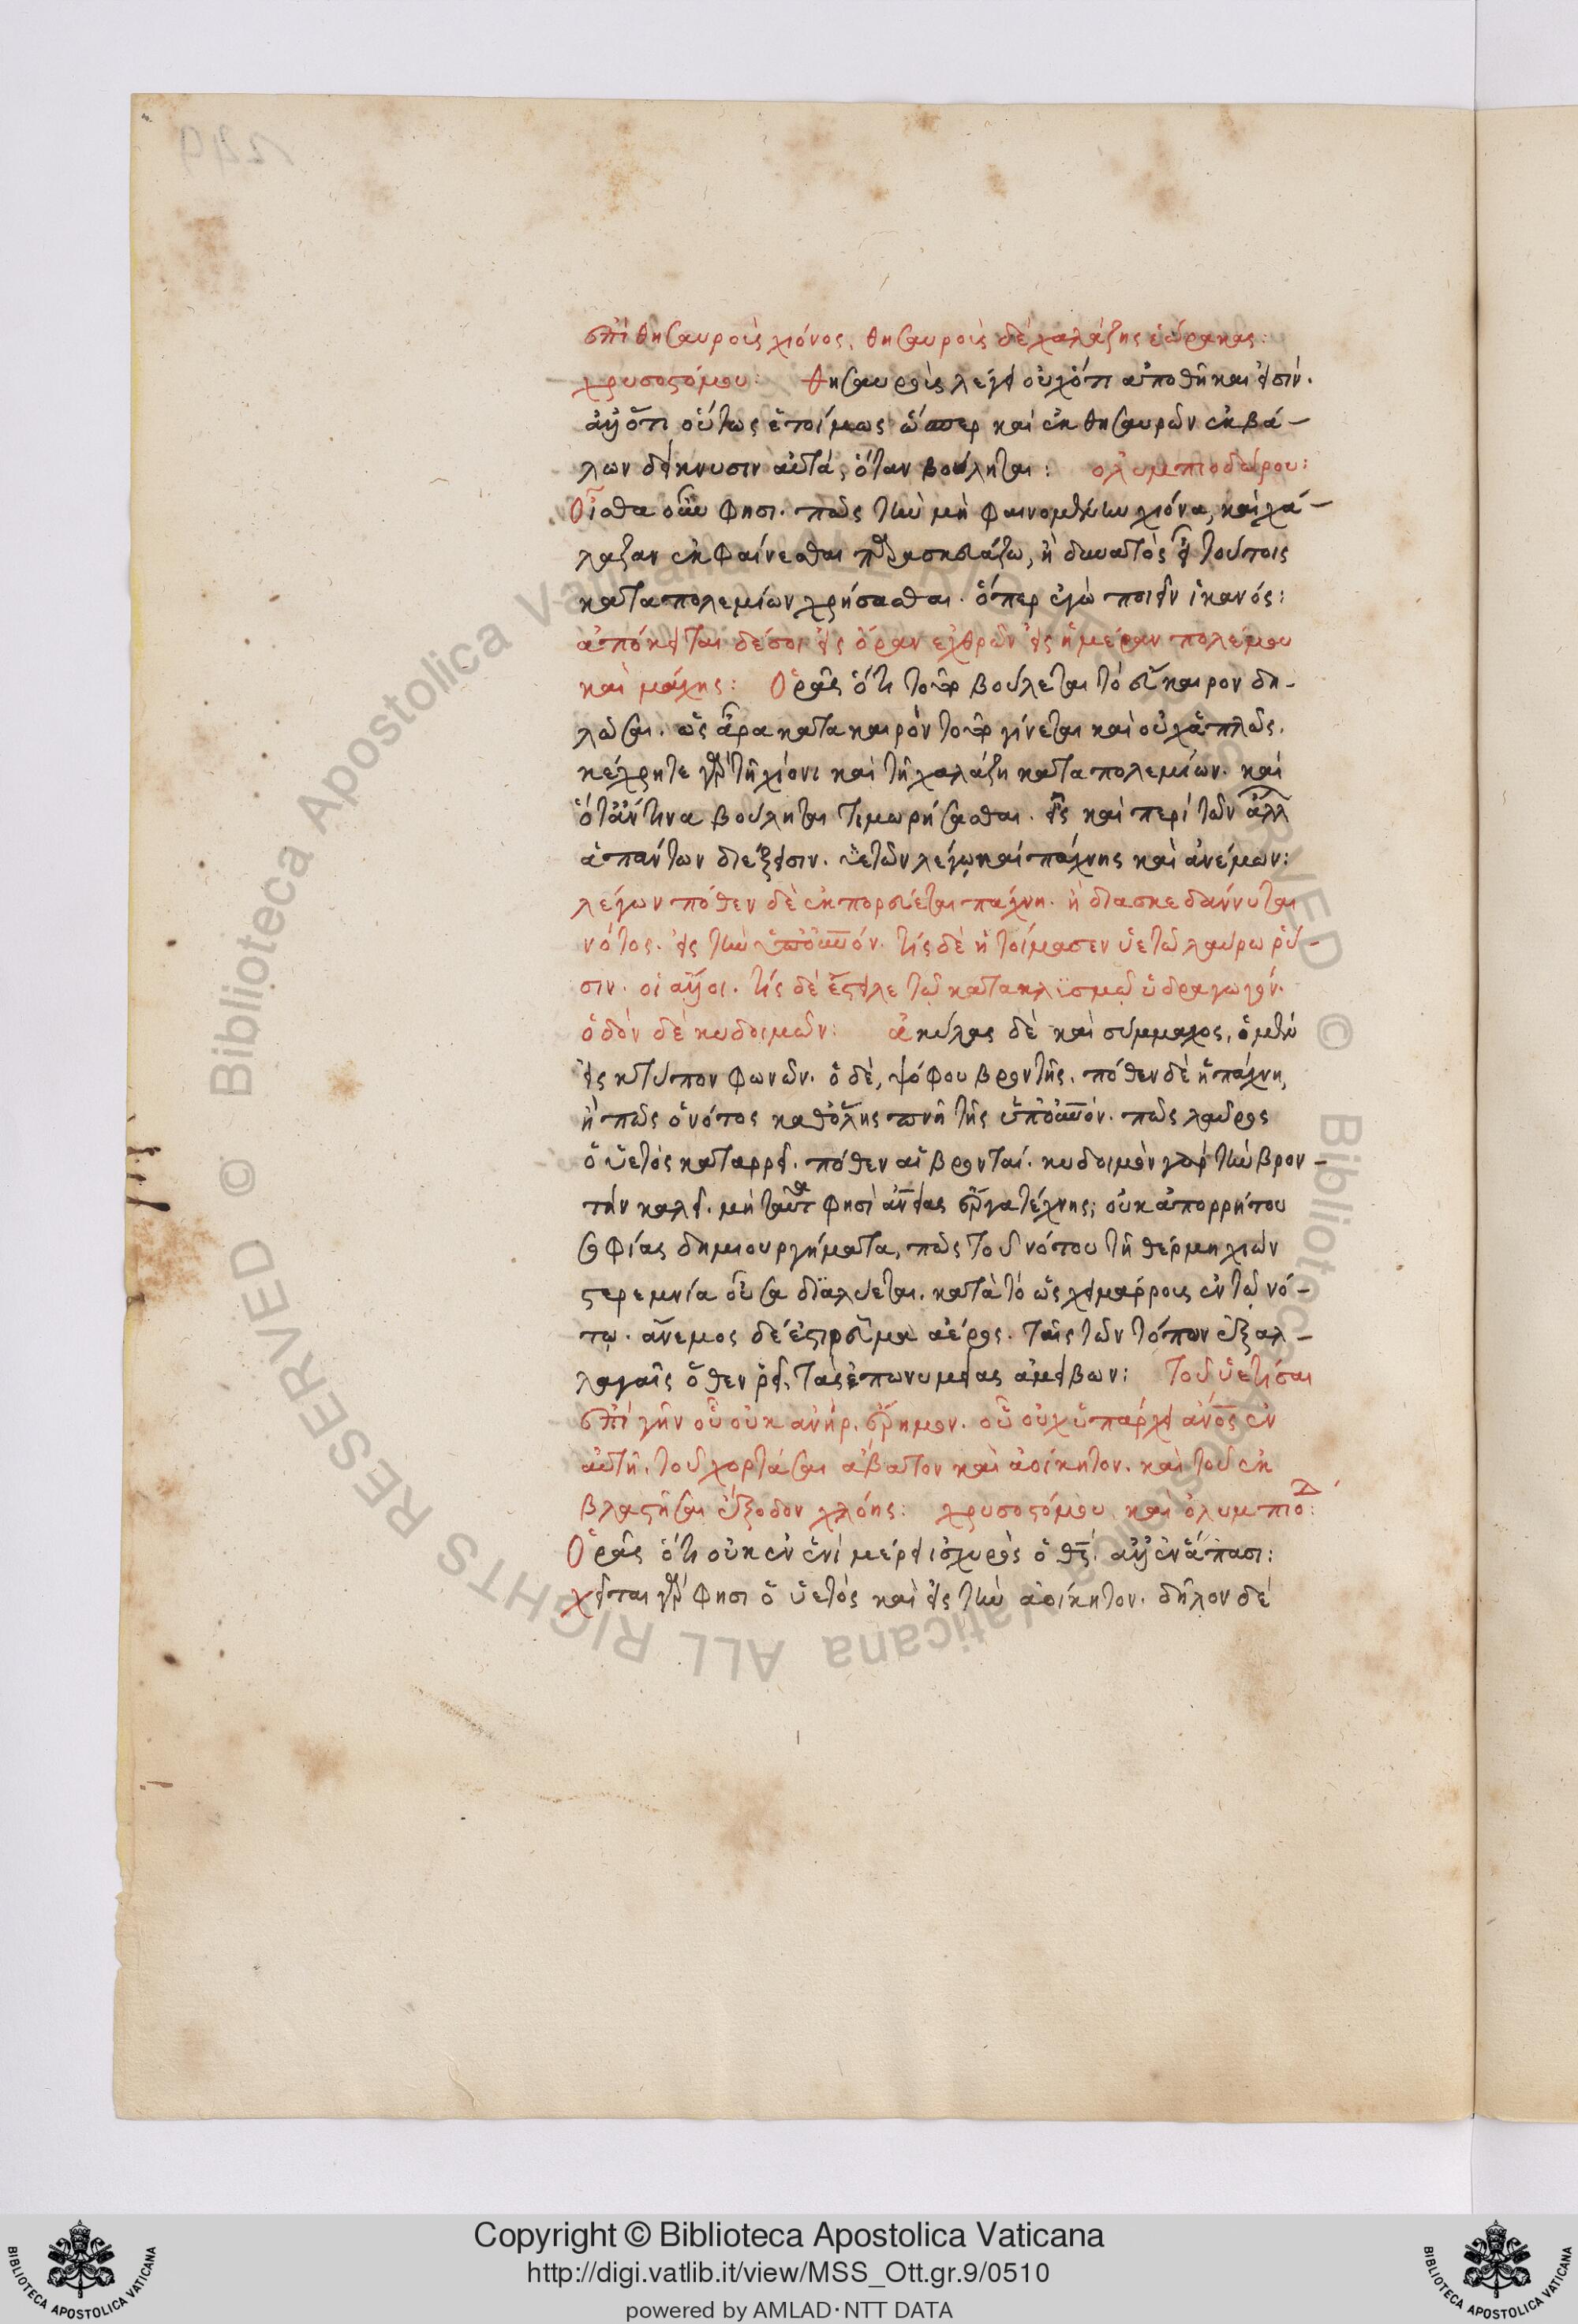 ἐπὶ θησαυροὺς χιόνος. θησαυροὺς δὲ χαλάζης ἑώρακας:
χρυσοστόμου: Θησαυροὺς λέγει οὐχ ὅτι ἀποθῆκαι εἰσίν.
ἀλλ' ὅτι οὕτως ἑτοίμως ὥσπερ καὶ ἐκ θησαυρῶν ἐκβά-
λων δείκνυσιν αὐτά, ὅταν βούληται: ὀλυμπιοδώρου:
Οἶσθα οὖν φησι. πῶς τὴν μὴ φαινομένην χιόνα, καὶ χά-
λαζαν ἐκφαίνεσθαι παρασκευάζω, ἢ δυνατὸς εἶ τούτοις
κατὰ πολεμίων χρήσασθαι. ὅπερ ἐγὼ ποιεῖν ἱκανός:
ἀπόκειται δέ σοι εἰς ὥραν ἐχθρῶν εἰς ἡμέραν πολέμου
καὶ μάχης: Ὁρᾷς ὅτι τοῦτο βούλεται τὸ εὔκαιρον δη-
λῶσαι. ὡς ἄρα κατὰ καιρὸν τοῦτο γίνεται καὶ οὐχ ἁπλῶς.
κέχρητε γὰρ τῇ χιόνι καὶ τῇ χαλάζῃ κατὰ πολεμίων. καὶ
ὅτἄν τινα βούληται τιμωρήσασθαι. εἶς καὶ περὶ τῶν ἄλλ
ἁπάντων διέξεισιν. ὑετῶν λέγω καὶ πάχνης καὶ ἀνέμων:
λέγων πόθεν δὲ ἐκπορεύεται πάχνη. ἢ διασκεδάννυται
νότος. εἰς τὴν ὑπ' οὐνόν. τίς δὲ ἡτοίμασεν ὑετῷ λαύρω ῥύ-
σιν. οἱ ἄλλοι. τίς δὲ ἔστειλε τῷ κατακλϊσμῷ ὑδραγωγόν.
ὁδὸν δὲ κυδοιμῶν: ἀκύλας δὲ καὶ σύμμαχος, ὁ μὲν
εἰς κτύπον φωνῶν. ὁ δὲ, ψόφου βροντῆς. πόθεν δὲ ἡ πάχνη,
ἢ πῶς ὁ νότος καθόλης πνῆ τῆς ὑπ' οὐνόν. πῶς λαῦρος
ὁ ὑετὸς καταρρεῖ. πόθεν αἱ βρονταί. κυδοιμὸν γὰρ τὴν βρον-
τήν καλεῖ. μὴ ταῦτα φησὶ ἀνίας ἔργα τέχνης; οὐκ ἀπορρήτου
σοφίας δημιουργήματα, πῶς τοῦ νότου τῇ θέρμῃ χιών
στερεμνία οὖσα διαλύεται. κατὰ τὸ ὡς χειμάρρους ἐν τῷ νό-
τῳ. ἄνεμος δέ ἐστι ρεῦμα ἀέρος. ταῖς τῶν τόπων ἐξαλ-
λαγαῖς ὅθεν ῥεῖ, τὰς ἐπωνυμίας ἀμείβων: Τοῦ ὑετίσαι
ἐπὶ γῆν οὗ οὐκ ἀνήρ. ἔρημον. οὗ οὐχ ὑπάρχει ἄνος ἐν
αὐτῇ. τοῦ χορτάσαι ἄβατον καὶ ἀοίκητον. καὶ τοῦ ἐκ
βλαστῆσαι ἔξοδον χλόης: χρυσοστόμου καὶ ὀλυμπιοδ:
Ὁρᾷς ὅτι οὐκ ἐν ἑνὶ μέρει ἰσχυρὸς ὁ θς. ἀλλ' ἐν ἅπασι:
χεῖται γάρ φησι ὁ ὑετὸς καὶ εἰς τὴν ἀοίκητον. δῆλον δὲ
Copyright © Biblioteca Apostolica Vaticana
http://digi.vatlib.it/view/MSS_Ott.gr.9/0510
powered by AMLAD·NTT DATA